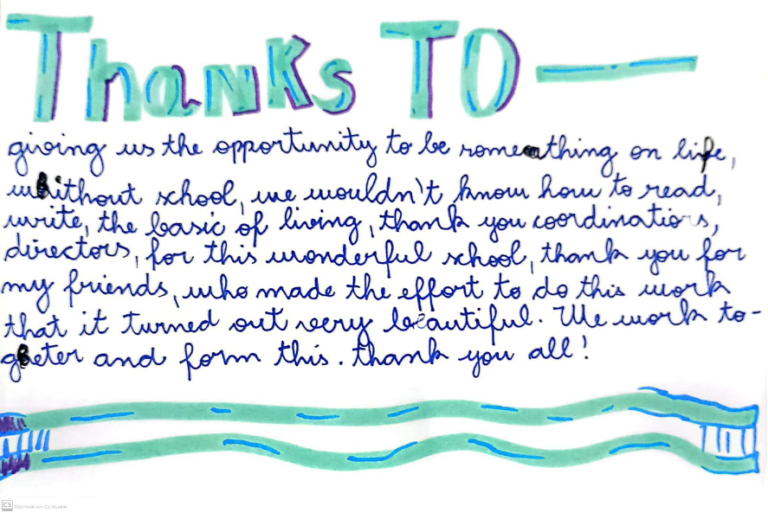 Thanks TO —
giving us the opportunity to be something on life,
without school, we wouldn't know how to read,
write, the basic of living, thank you coordinatiors,
directors, for this wonderful school, thank you for
my friends, who made the effort to do this work
that it turned out very beautiful. We work to-
geter and form this. thank you all!
CS